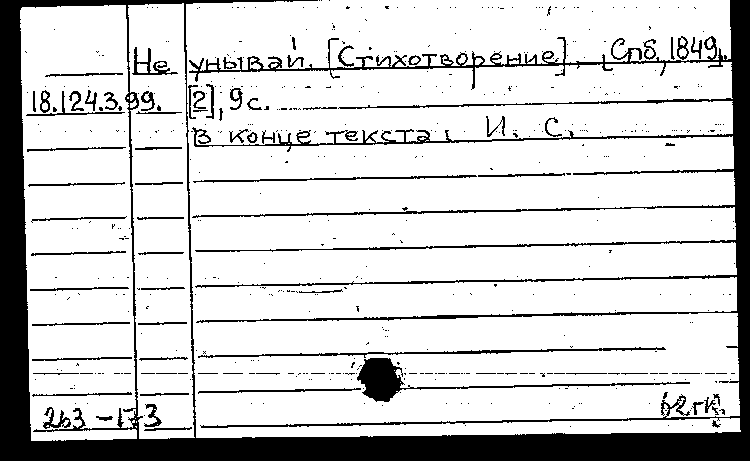 Не унывай. [Стихотворение]. [Спб, 1849].
18.124.3.99. [2], 9 с.
В конце текста: И. С.
263-173